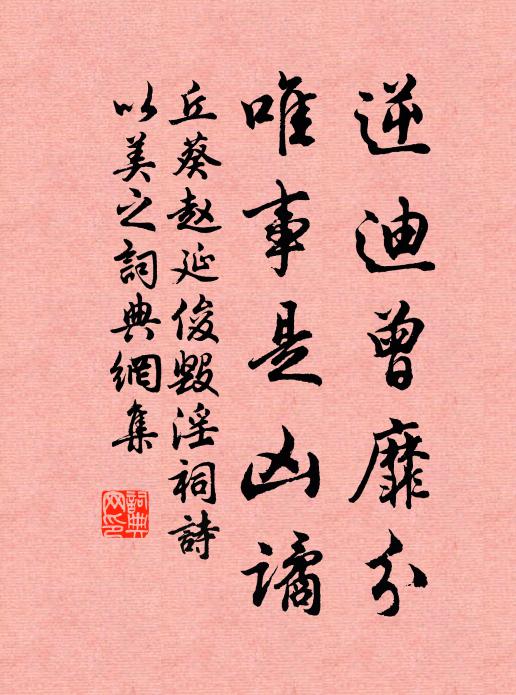 逆迪曾靡分
唯事是凶譎
丘葵赵延俊毀淫祠詩
以美之詞典網集
詞典
网印